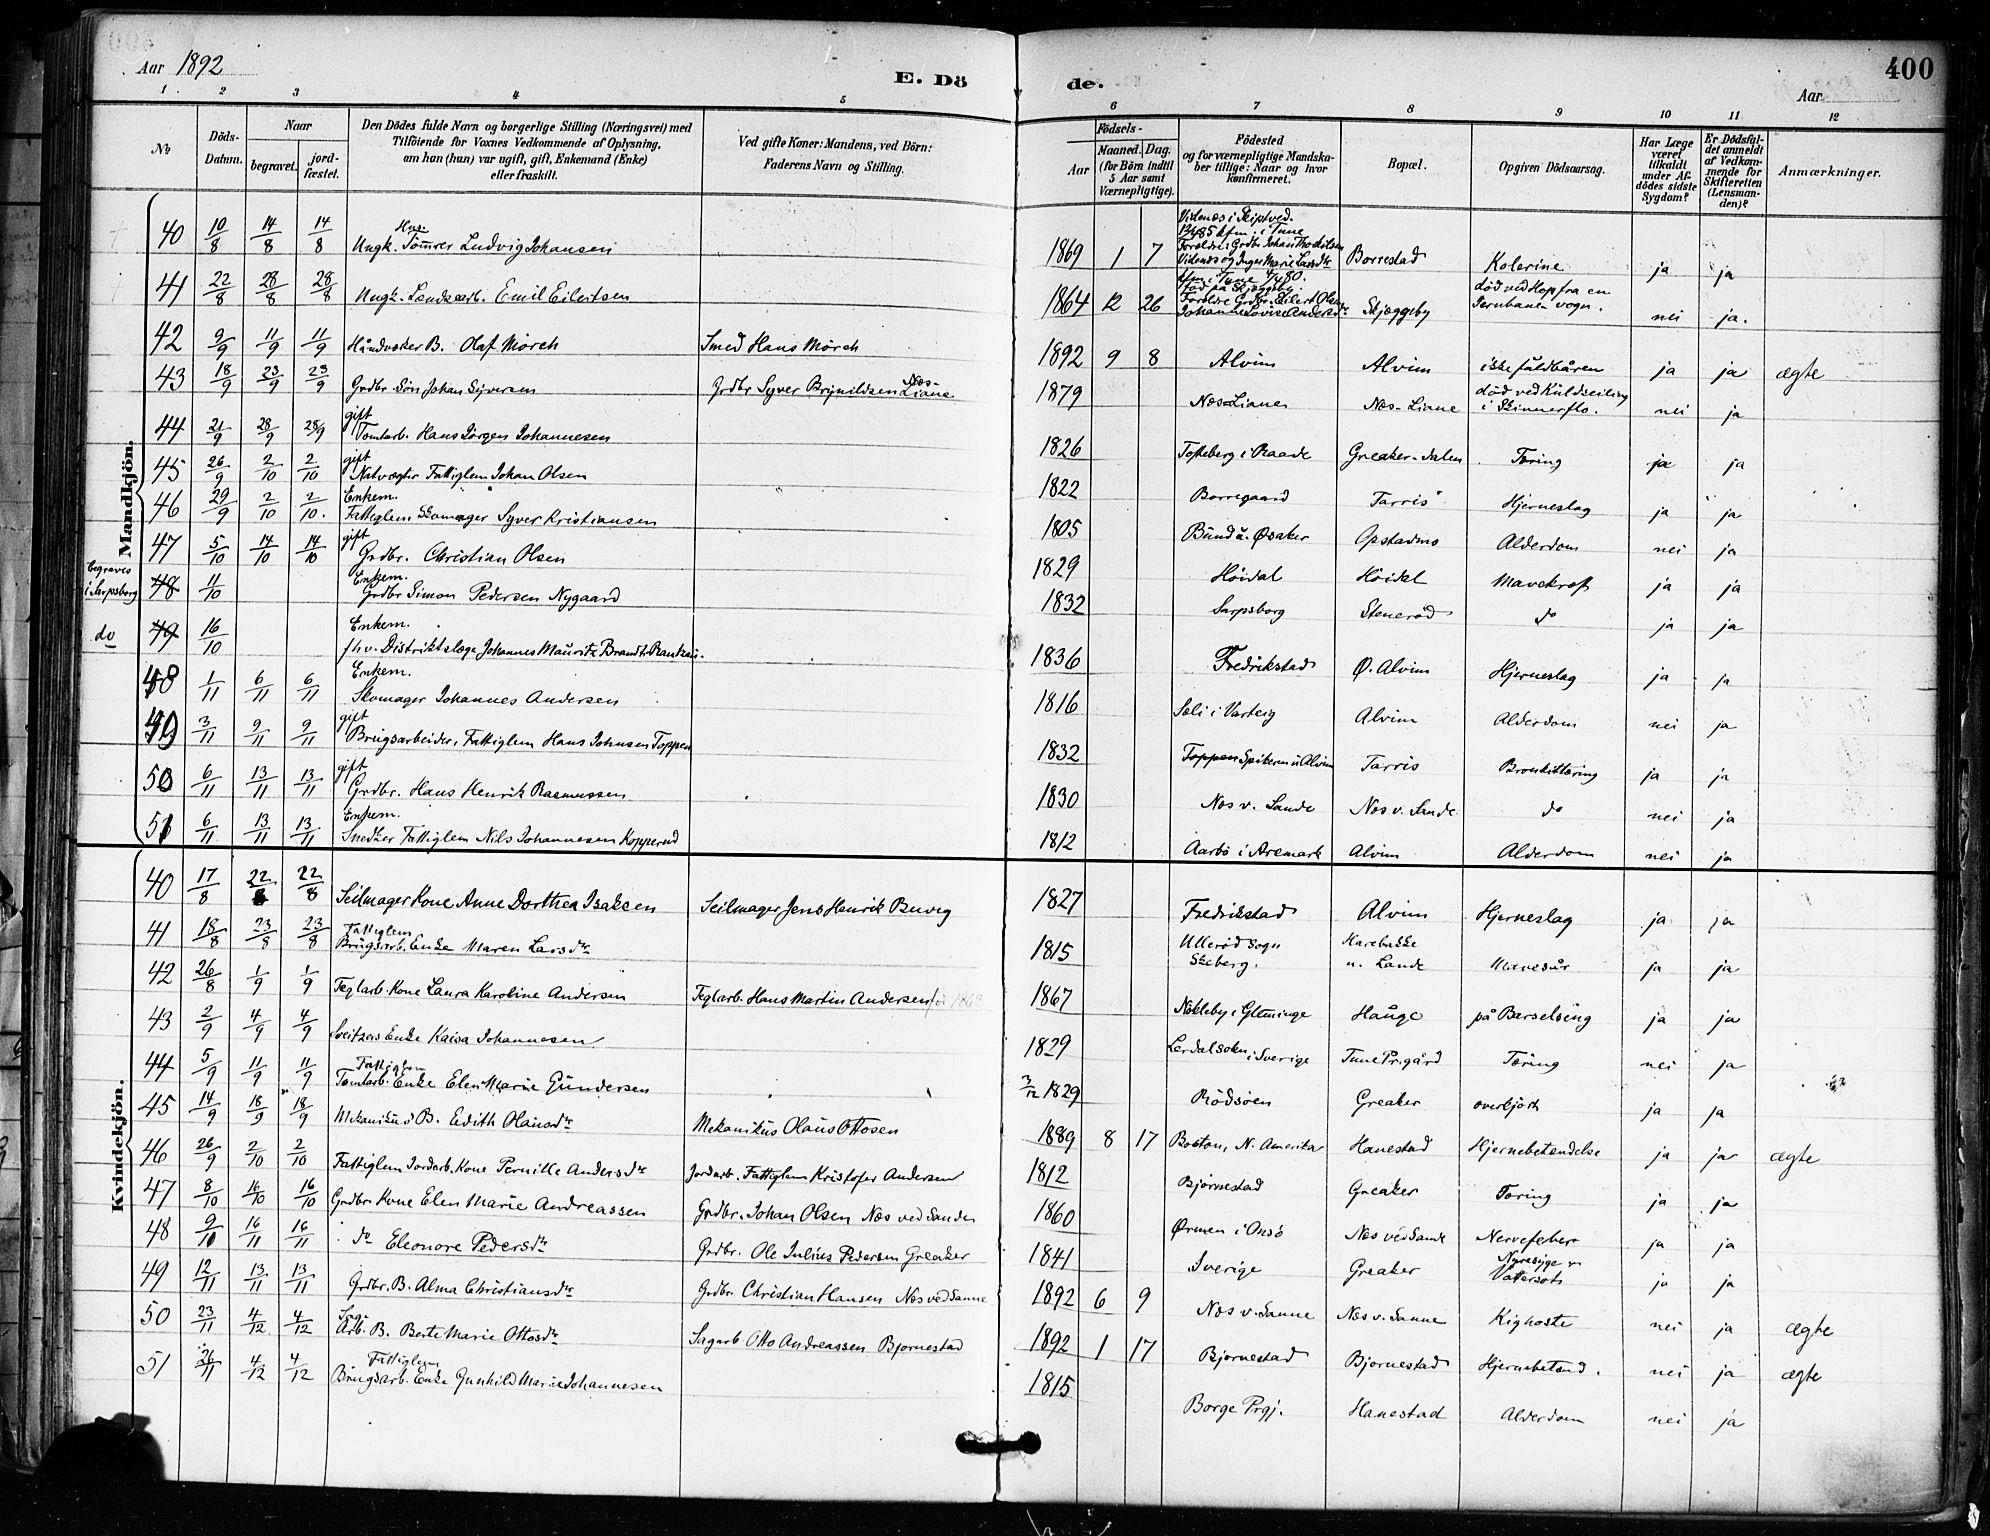 Aar 1892
E. Döde.
Aar
400
1 2 3 4 5 6 7 8 9 10 11 12
No
Döds-Datum.
Naar
begravet.
jordfæstet.
Den Dödes fulde Navn og borgerlige Stilling (Næringsvei) med
Tilföiende for Voxnes Vedkommende af Oplysning,
om han (hun) var ugift, gift, Enkemand (Enke)
eller fraskilt.
Ved gifte Koner: Mandens, ved Börn:
Faderens Navn og Stilling.
Födsels-
Aar
Maaned. Dag.
(for Börn indtil
5 Aar samt
Værnepligtige).
Födested
og for værnepligtige Mandskaber tillige: Naar og hvor
konfirmeret.
Bopæl.
Opgiven Dödsaarsag.
Har Læge
været
tilkaldt
under Afdödes sidste
Sygdom?
Er Dödsfaldet anmeldt
af Vedkommende for
Skifteretten
(Lensmanden)?
Anmærkninger.
Mandkjön.
40 10/8 14/8 14/8 Ungk. Tömrer Ludvig Johansen 1869 1 7 Videnæs i Skiptved. Borrestad Kolerine ja ja
41 22/8 28/8 28/8 Ungk. Landarb. Emil Eilertsen 1864 12 26 Skjæggeby død ved Hop fra en Jernbanevogn. nei ja.
42 9/9 11/9 11/9 Håndværker B. Olaf Mörch Smed Hans Mörch 1892 9 8 Alvim Alvim ikke fuldbåren ja ja ægte
43 18/9 23/9 23/9 Grdbr. Sön Johan Syversen Grdbr Syver Brynildsen Næs-Liane 1879 Næs-Liane Næs-Liane död ved Kuldseiling i nei ja
44 21/9 28/9 28/9 gift Tomtarb. Hans Jörgen Johannesen 1826 Tosteberg i Raade Greaker-dalen Tæring ja ja
45 26/9 2/10 2/10 gift Natvægter Fattiglem Johan Olsen 1822 Borregaard Tarris Hjerneslag ja ja
46 29/9 2/10 2/10. Enkem. Fattiglem Skomager Syver Kristiansen 1805 Bund u. Øsaker Opstadmo Alderdom nei ja
47 5/10 14/10 14/10 gift Grdbr. Christian Olsen 1829 Höidal Höidal Mavekreft ja ja
begraves i Sarpsborg 48 11/10 Enkem. Grdbr Simon Pedersen Nygaard 1832 Sarpsborg Stenerød do ja ja
do 49 16/10 Enkem. fhv. Distriktslæge Johannes Mauritz Brandt Rantzau. 1836 Fredrikstad Ø. Alvim Hjerneslag ja ja
48 1/11 6/11 6/11 Enkem. Skomager Johannes Andersen 1816 Sæli i Varteig Alvim Alderdom nei ja
49 3/11 9/11 9/11 gift Brugsarbeider, Fattiglem Hans Johnsen Toppen 1832 Toppen Spikeren u Alvim Tarris Bronkittæring ja ja
50 6/11 13/11 13/11 gift Grdbr. Hans Henrik Rasmussen 1830 Næs v. Sande Næs v. Sande do nei ja
51 6/11 13/11 13/11 Enkem. Snedker Fattiglem Nils Johannesen Kopperud 1812 Aarbö i Aremark Alvim Alderdom nei ja
Kvindekjön.
40 17/8 22/8 22/8 Seilmager Kone Anne Dorthea Isaksen Seilmager Jens Henrik Buvig 1827 Fredrikstad Alvim Hjerneslag ja ja
41 18/8 23/8 23/8 Fattiglem Brugsarb. Enke Maren Larsdtr 1815 Ullerød sogn Skeberg. Harebakke u. Lande Mavesår ja ja
42 26/8 1/9 1/9 Teglarb. Kone Laura Karoline Andersen Teglarb. Hans Martin Andersen 1867 Nökleby i Glemminge Hauge på Barselseng ja ja
43 2/9 4/9 4/9 Sveitzers Enke Kaisa Johannesen 1829 Lerdal sokn i Sverige Tune Prgård Tæring nei ja
44 5/9 11/9 11/9 Fattiglem Tomtarb. Enke Elen Marie Gundersen 3/12 1829 Rödsöen Greaker overkjört ja ja
45 14/9 18/9 18/9 Mekanikus B. Edith Olausdtr Mekanikus Olaus Ottosen 1889 8 17 Boston, N. Amerika Hanestad Hjernebetændelse ja ja ægte
46 26/9 2/10 2/10 Fattiglem Jordarb. Kone Pernille Andersdtr Jordarb. Fattiglem Kristofer Andersen 1812 Bjørnestad Greaker Tæring ja ja
47 8/10 16/10 16/10 Grdbr Kone Elen Marie Andreassen Grdbr. Johan Olsen Næs ved Sande 1860 Ørmen i Onsö Næs ved Sande Nervefeber ja ja
48 9/10 16/11 16/11 do Eleonore Pedersdtr Grdbr. Ole Julius Pedersen Greaker 1841 Sverige Greaker Nyresyge og Vattersot ja ja
49 12/11 13/11 13/11 Grdbr. B. Alma Christiansdtr Grdbr Christian Hansen Næs ved Sanne 1892 6 9 Næs v. Sanne Næs v. Sanne Kighoste nei ja ægte
50 23/11 4/12 4/12 Sag-Arb. B. Berte Marie Ottosdtr Sagarb Otto Andreassen Bjørnestad 1892 1 17 Bjørnestad Bjørnestad Hjernebetænd. nei ja ægte
51 26/11 4/12 4/12 Fattiglem Brugsarb. Enke Gunhild Marie Johannesen 1815 Borge Prgj. Hanestad Alderdom nei ja